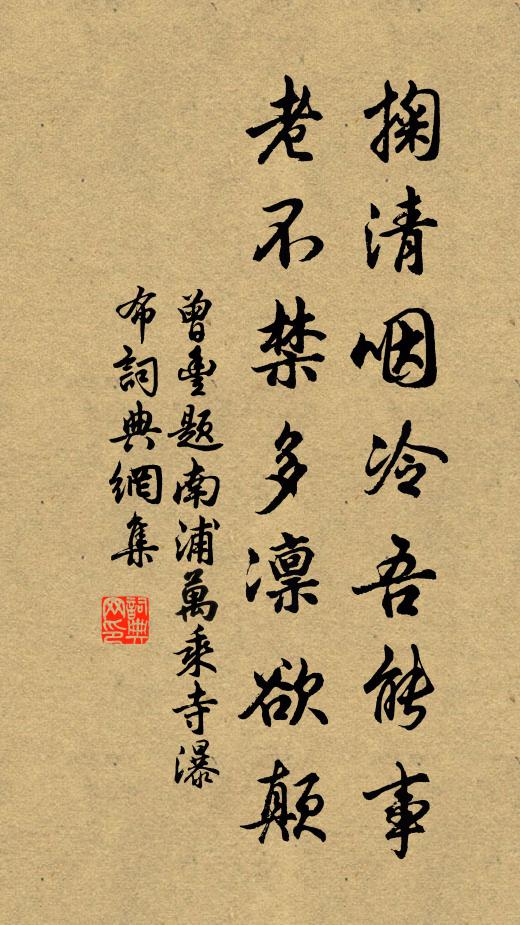 掬清咽冷吾能事
老不禁多凛欲颠
曾豊题南浦萬乘寺瀑
布詞典網集
詞典
网印